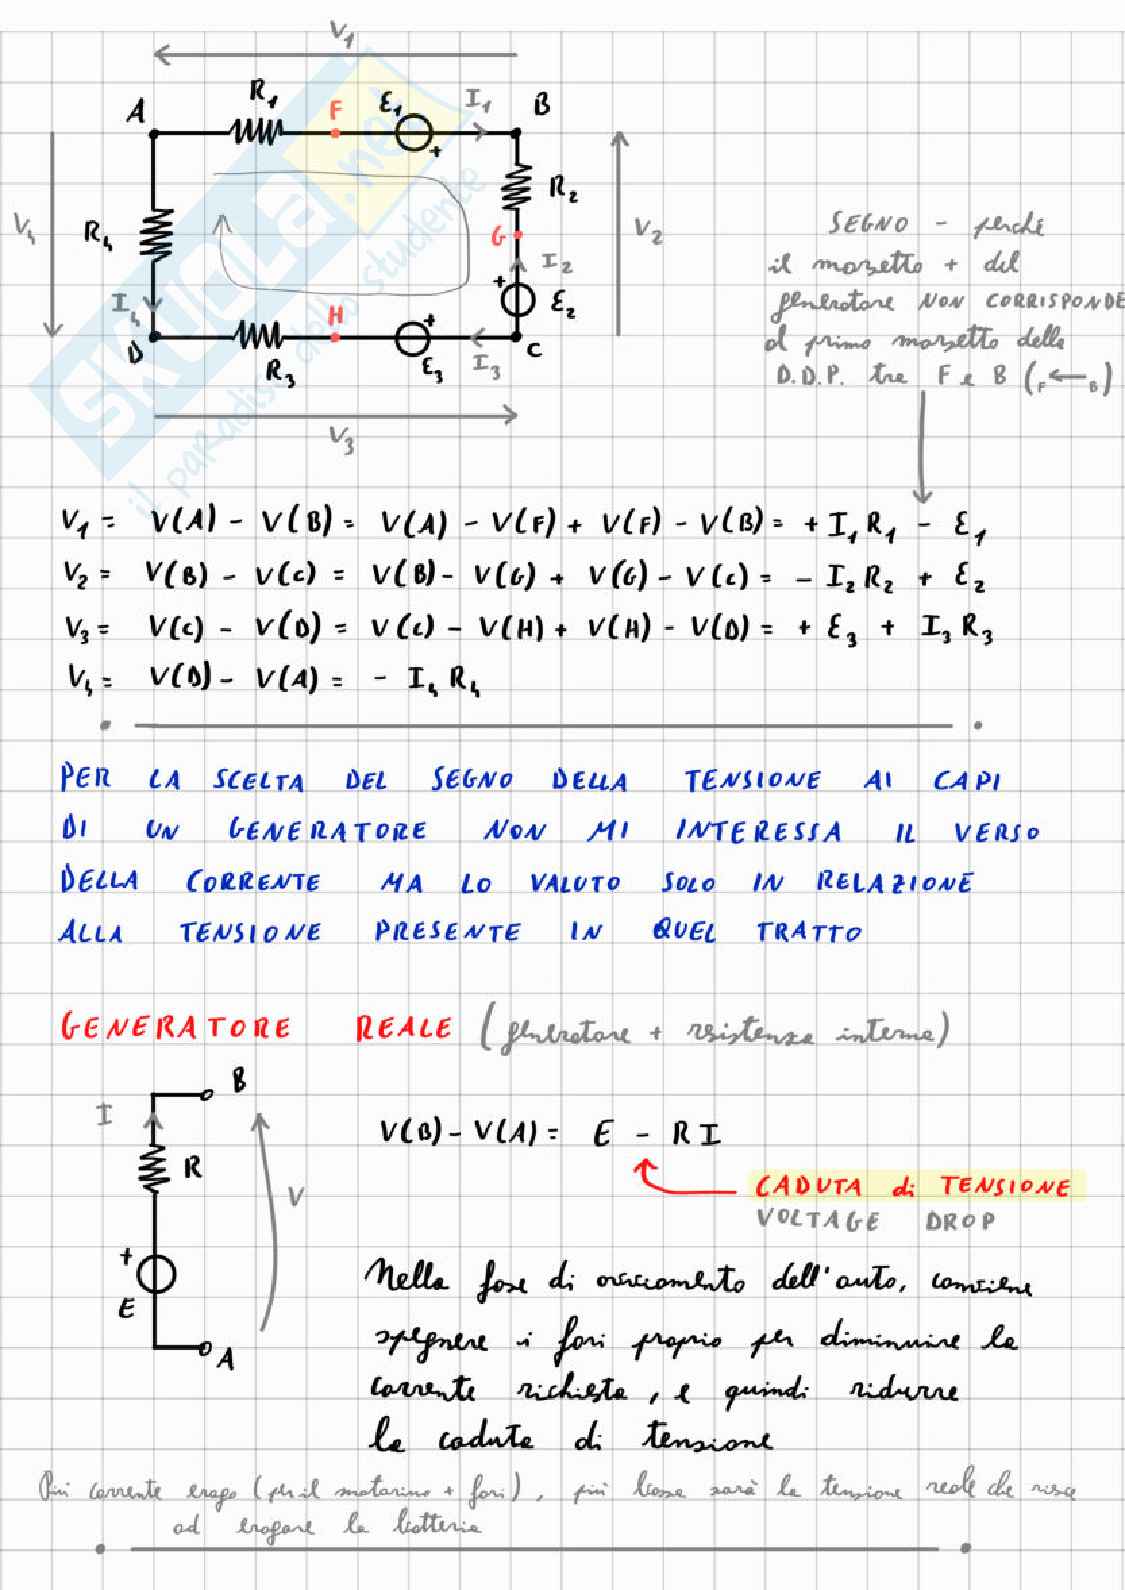 V₁
A
R₁
F
ε₁
I₁
B
V₄
R₄
R₂
G
V₂
I₂
I₄
H
ε₂
D
R₃
ε₃
I₃
C
V₃
SKUOLA.net
il paradiso dello studente
SEGNO - perché
il morsetto + del
generatore NON CORRISPONDE
al primo morsetto della
D.D.P. tra F e B (F ← B)
V₁ = V(A) - V(B) = V(A) - V(F) + V(F) - V(B) = + I₁R₁ - ε₁
V₂ = V(B) - V(C) = V(B) - V(G) + V(G) - V(C) = - I₂R₂ + ε₂
V₃ = V(C) - V(D) = V(C) - V(H) + V(H) - V(D) = + ε₃ + I₃R₃
V₄ = V(D) - V(A) = - I₄R₄
PER LA SCELTA DEL SEGNO DELLA TENSIONE AI CAPI
DI UN GENERATORE NON MI INTERESSA IL VERSO
DELLA CORRENTE MA LO VALUTO SOLO IN RELAZIONE
ALLA TENSIONE PRESENTE IN QUEL TRATTO
GENERATORE REALE (generatore + resistenza interna)
B
I
R
V
+
E
A
V(B) - V(A) = E - RI
CADUTA di TENSIONE
VOLTAGE DROP
Nella fase di avviamento dell'auto, conviene
spegnere i fari proprio per diminuire la
corrente richiesta, e quindi ridurre
la caduta di tensione
Più corrente erogo (per il motorino + fari), più bassa sarà la tensione reale che riesce
ad erogare la batteria